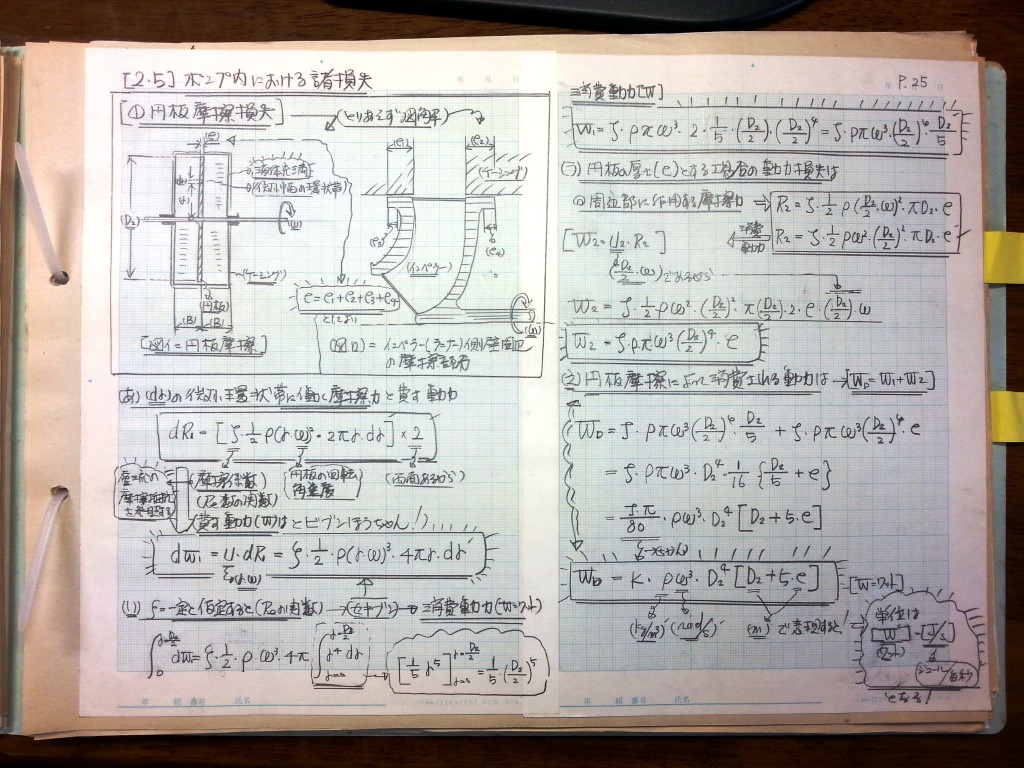 [2・5] ポンプ内における諸損失
① 円板摩擦損失
(とりあえず図解)
(e)
D₂
(ω)
(ケーシング)
(円板)
(B) (B)
[図イ=円板摩擦]
(e₁) (e₂)
(ケーシング)
(e₃) (e₄)
(インペラー)
e=e₁+e₂+e₃+e₄
(n)
(図ロ)=インペラー(ランナー)側壁周辺
の摩擦部
(あ)(dr)の微小環状帯に働く摩擦力と費す動力
dR₁=[ζ・1/2 ρ(r・ω)²・2πr・dr]×2
摩擦係数)
(Reの関数)
(円板の回転
角速度
(両面あるから)
費す動力(W)はとビブンほうちゃん!
dW₁=U・dR₁=ζ・1/2・ρ(r・ω)³・4πr・dr
(r・ω)
(い) ζ=一定と仮定すると(Reの関数) →(セキブン)→ 消費動力(W=ワット)
∫₀^(r=D₂/2) dW=ζ・1/2・ρ・ω³・4π ∫_(r=0)^(r=D₂/2) r⁴dr → [1/5 r⁵]_(r=0)^(r=D₂/2)=1/5・(D₂/2)⁵
年 組 番号 氏名
P.25
消費動力[W]
W₁=ζ・ρπω³・2・1/5・(D₂/2)・(D₂/2)⁴=ζ・ρπω³・(D₂/2)⁴・D₂/5
(う) 円板の厚さ(e)とする場合の動力損失は
周辺部に作用する摩擦力 → R₂=ζ・1/2 ρ(D₂/2・ω)²・πD₂・e
[W₂=U₂・R₂]
消費動力
R₂=ζ・1/2 ρω²・(D₂/2)²・πD₂・e
(D₂/2・ω)であるから
W₂=ζ・1/2・ρω²・(D₂/2)²・π(D₂/2)・2・e・(D₂/2)ω
W₂=ζ・ρπω³(D₂/2)⁴・e
(え) 円板摩擦によって消費される動力は→[W_D=W₁+W₂]
W_D=ζ・ρπω³(D₂/2)⁴・D₂/5 + ζ・ρπω³(D₂/2)⁴・e
=ζ・ρπω³・D₂⁴・1/16{D₂/5+e}
=ζ・π/80・ρω³・D₂⁴[D₂+5・e]
W_D=K・ρω³・D₂⁴[D₂+5・e]
(kg/m³) (rad/s) (m)で表現すると
[W=ワット]
単位は
W=J/s
(ワット)
ジュール/毎秒
となる!
年 組 番号 氏名